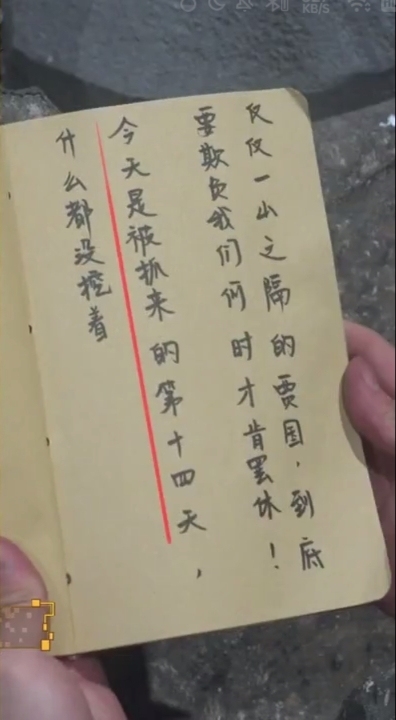 仅仅一山之隔的贾国，到底
要欺负我们何时才肯罢休！
今天是被抓来的第十四天，
什么都没挖着
KB/S